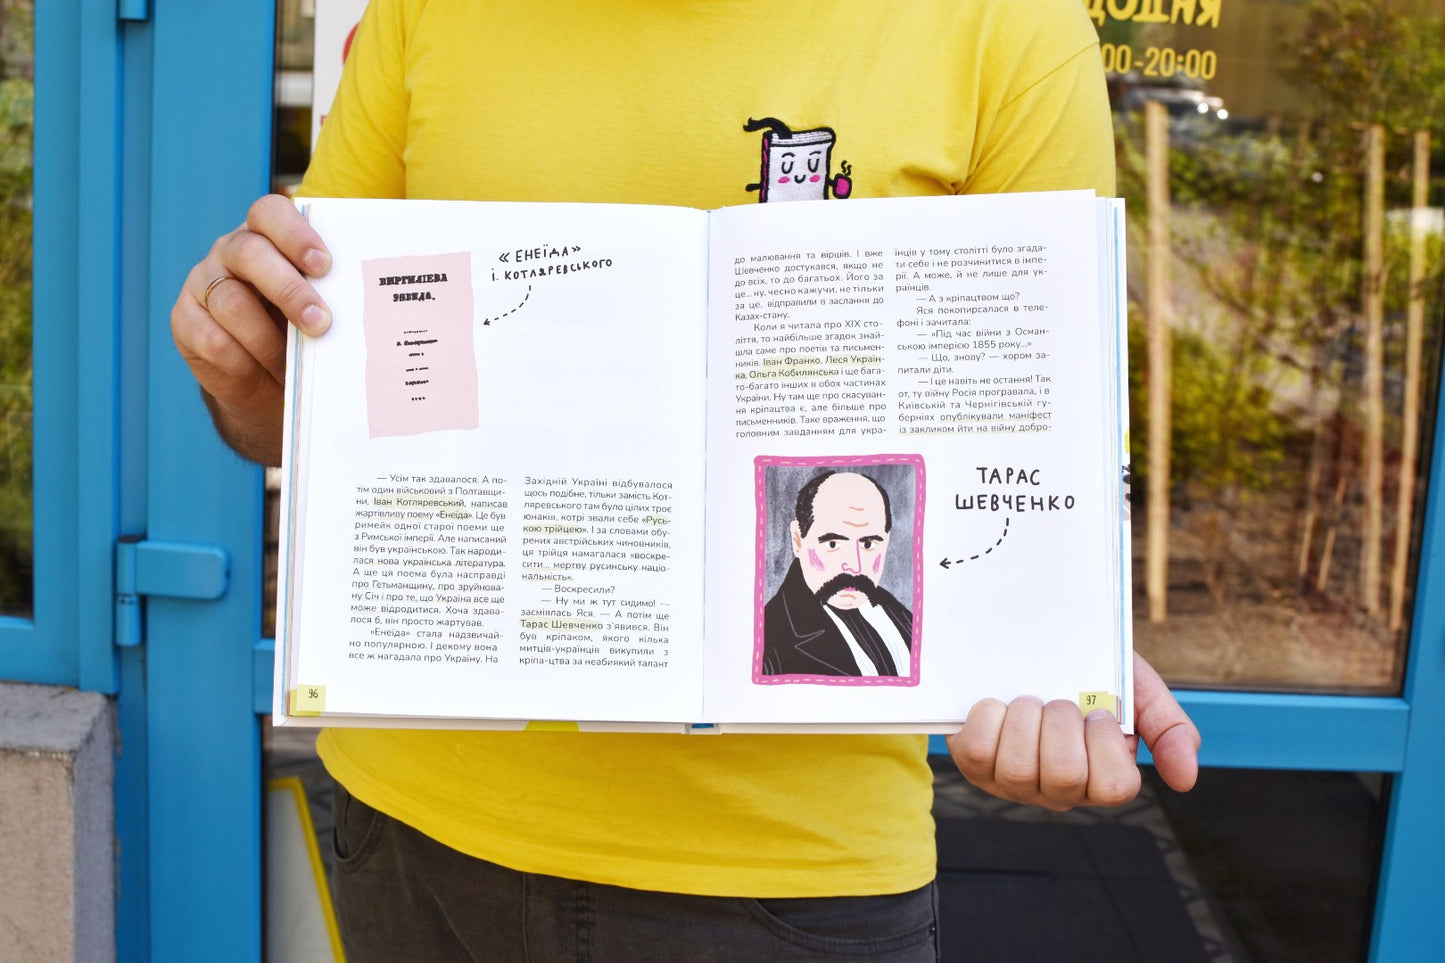 ОДНЯ
00-20:00
« ЕНЕЇДА»
І. КОТЛЯРЕВСЬКОГО
ВИРГИЛІЕВА
ЭНЕИДА.
— Усім так здавалося. А по-
тім один військовий з Полтавщи-
ни, Іван Котляревський, написав
жартівливу поему «Енеїда». Це був
римейк одної старої поеми ще
з Римської імперії. Але написаний
він був українською. Так народи-
лася нова українська література.
А ще ця поема була насправді
про Гетьманщину, про зруйнова-
ну Січ і про те, що Україна все ще
може відродитися. Хоча здава-
лося б, він просто жартував.
«Енеїда» стала надзвичай-
но популярною. І декому вона
все ж нагадала про Україну. На
Західній Україні відбувалося
щось подібне, тільки замість Кот-
ляревського там було цілих троє
юнаків, котрі звали себе «Русь-
кою трійцею». І за словами обу-
рених австрійських чиновників,
ця трійця намагалася «воскре-
сити... мертву русинську націо-
нальність».
— Воскресили?
— Ну ми ж тут сидимо! —
засміялась Яся. — А потім ще
Тарас Шевченко з’явився. Він
був кріпаком, якого кілька
митців-українців викупили з
кріпа-цтва за неабиякий талант
96
до малювання та віршів. І вже
Шевченко достукався, якщо не
до всіх, то до багатьох. Його за
це... ну, чесно кажучи, не тільки
за це, відправили в заслання до
Казах-стану.
Коли я читала про XIX сто-
ліття, то найбільше згадок знай-
шла саме про поетів та письмен-
ників. Іван Франко, Леся Україн-
ка, Ольга Кобилянська і ще бага-
то-багато інших в обох частинах
України. Ну там ще про скасуван-
ня кріпацтва є, але більше про
письменників. Таке враження, що
головним завданням для укра-
їнців у тому столітті було згада-
ти себе і не розчинитися в імпе-
рії. А може, й не лише для ук-
раїнців.
— А з кріпацтвом що?
Яся покопирсалася в теле-
фоні і зачитала:
— «Під час війни з Осман-
ською імперією 1855 року...»
— Що, знову? — хором за-
питали діти.
— І це навіть не остання! Так
от, ту війну Росія програвала, і в
Київській та Чернігівській гу-
берніях опублікували маніфест
із закликом йти на війну добро-
ТАРАС
ШЕВЧЕНКО
97